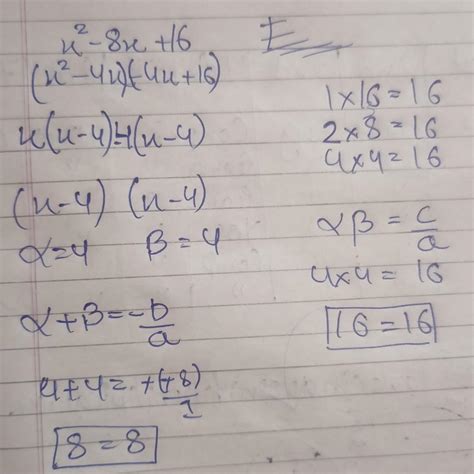 x² - 8x + 16
(x² - 4x)(-4x + 16)
x(x-4)-4(x-4)
(x-4) (x-4)
α=4 β=4
α+β=-b/a
4+4= +(+8)/1
8 = 8
E
1×16=16
2×8=16
4×4=16
αβ = c/a
4×4=16
16=16